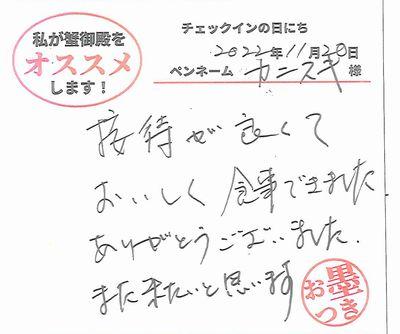 私が蟹御殿を
オススメ
します！
チェックインの日にち
2022年11月20日
ペンネーム カニスキ様
接待が良くて
おいしく食事できました
ありがとうございました.
また来たいと思います
お墨つき